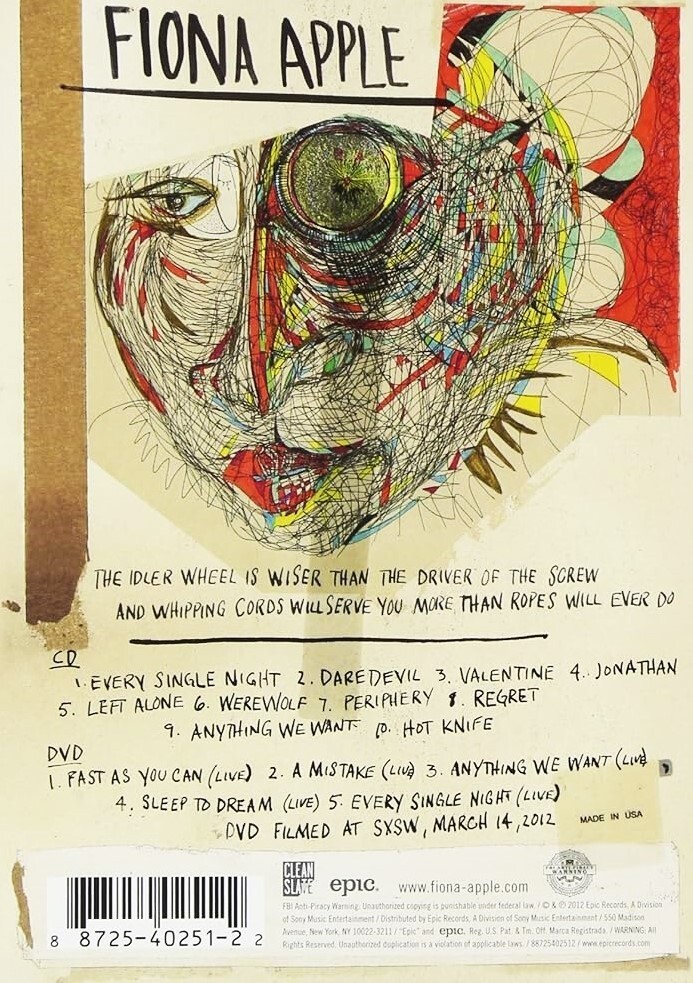 FIONA APPLE
THE IDLER WHEEL IS WISER THAN THE DRIVER OF THE SCREW
AND WHIPPING CORDS WILL SERVE YOU MORE THAN ROPES WILL EVER DO
CD
1. EVERY SINGLE NIGHT 2. DAREDEVIL 3. VALENTINE 4. JONATHAN
5. LEFT ALONE 6. WEREWOLF 7. PERIPHERY 8. REGRET
9. ANYTHING WE WANT 10. HOT KNIFE
DVD
1. FAST AS YOU CAN (LIVE) 2. A MISTAKE (LIVE) 3. ANYTHING WE WANT (LIVE)
4. SLEEP TO DREAM (LIVE) 5. EVERY SINGLE NIGHT (LIVE)
DVD FILMED AT SXSW, MARCH 14, 2012
MADE IN USA
CLEAN SLATE epic. www.fiona-apple.com FBI ANTI-PIRACY WARNING
FBI Anti-Piracy Warning: Unauthorized copying is punishable under federal law. / © & ℗ 2012 Epic Records, A Division
of Sony Music Entertainment / Distributed by Epic Records, A Division of Sony Music Entertainment / 550 Madison
Avenue, New York, NY 10022-3211 / "Epic" and epic. Reg. U.S. Pat. & Tm. Off. Marca Registrada. / WARNING: All
Rights Reserved. Unauthorized duplication is a violation of applicable laws. / 88725402512 / www.epicrecords.com
8 8725-40251-2 2